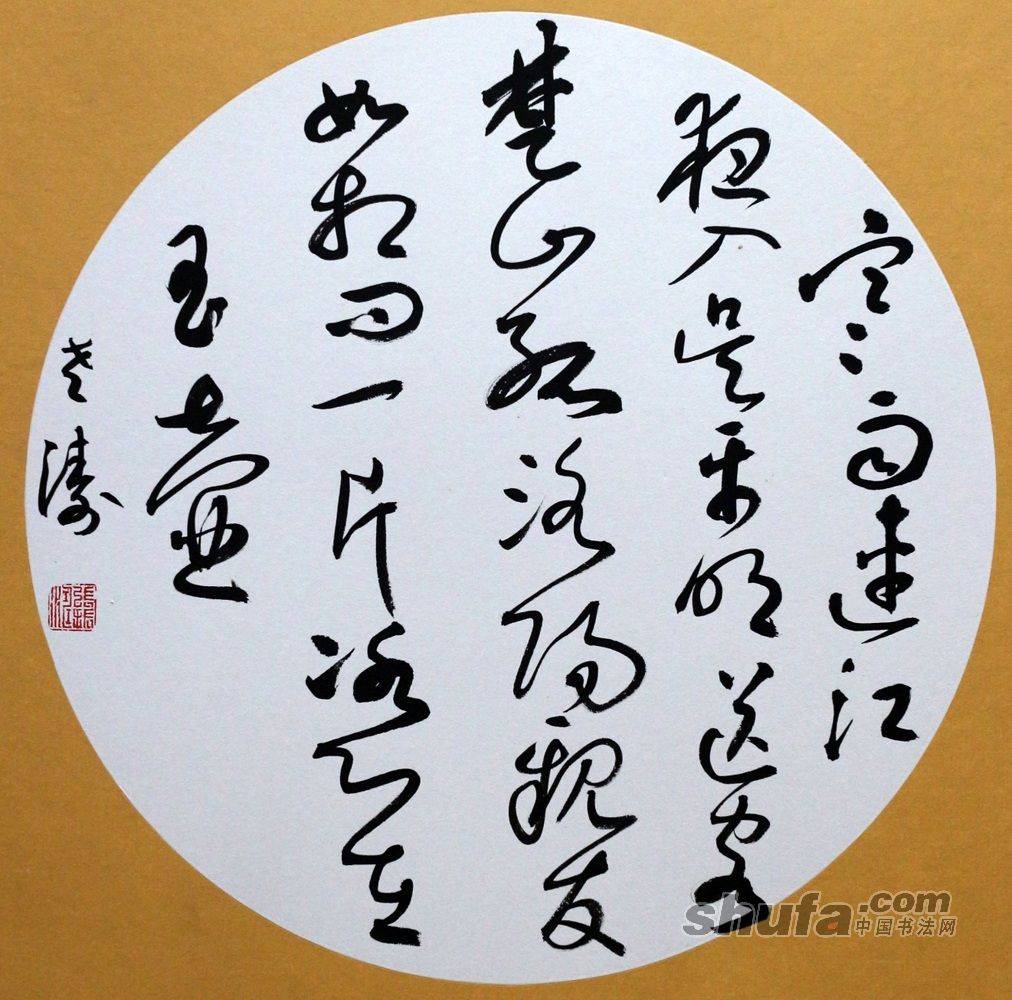 寒雨連江
夜入吴平明送客
楚山孤洛陽親友
如相問一片冰心在
玉壺
濤
shufa.com
中国书法网